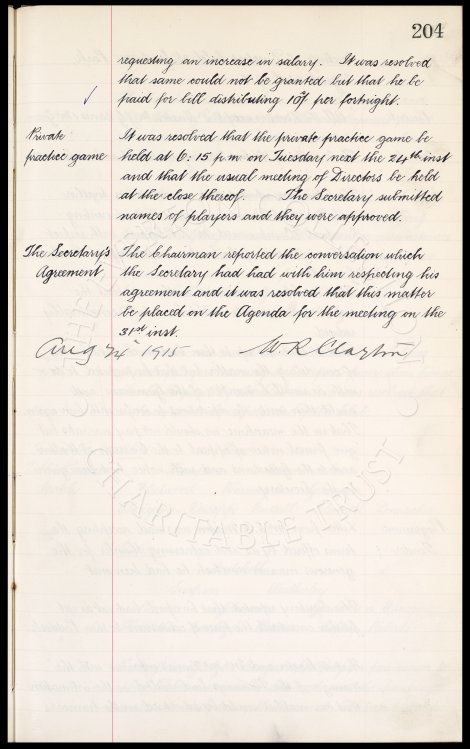 204
requesting an increase in salary. It was resolved
that same could not be granted but that he be
paid for bill distributing 10/- per fortnight.
Private practice game
It was resolved that the private practice game be
held at 6:15 p m on Tuesday next the 24th inst
and that the usual meeting of Directors be held
at the close thereof. The Secretary submitted
names of players and they were approved.
The Secretary's Agreement
The Chairman reported the conversation which
the Secretary had had with him respecting his
agreement and it was resolved that this matter
be placed on the Agenda for the meeting on the
31st inst.
Aug 24 1915 W R Clayton
CHARITABLE TRUST